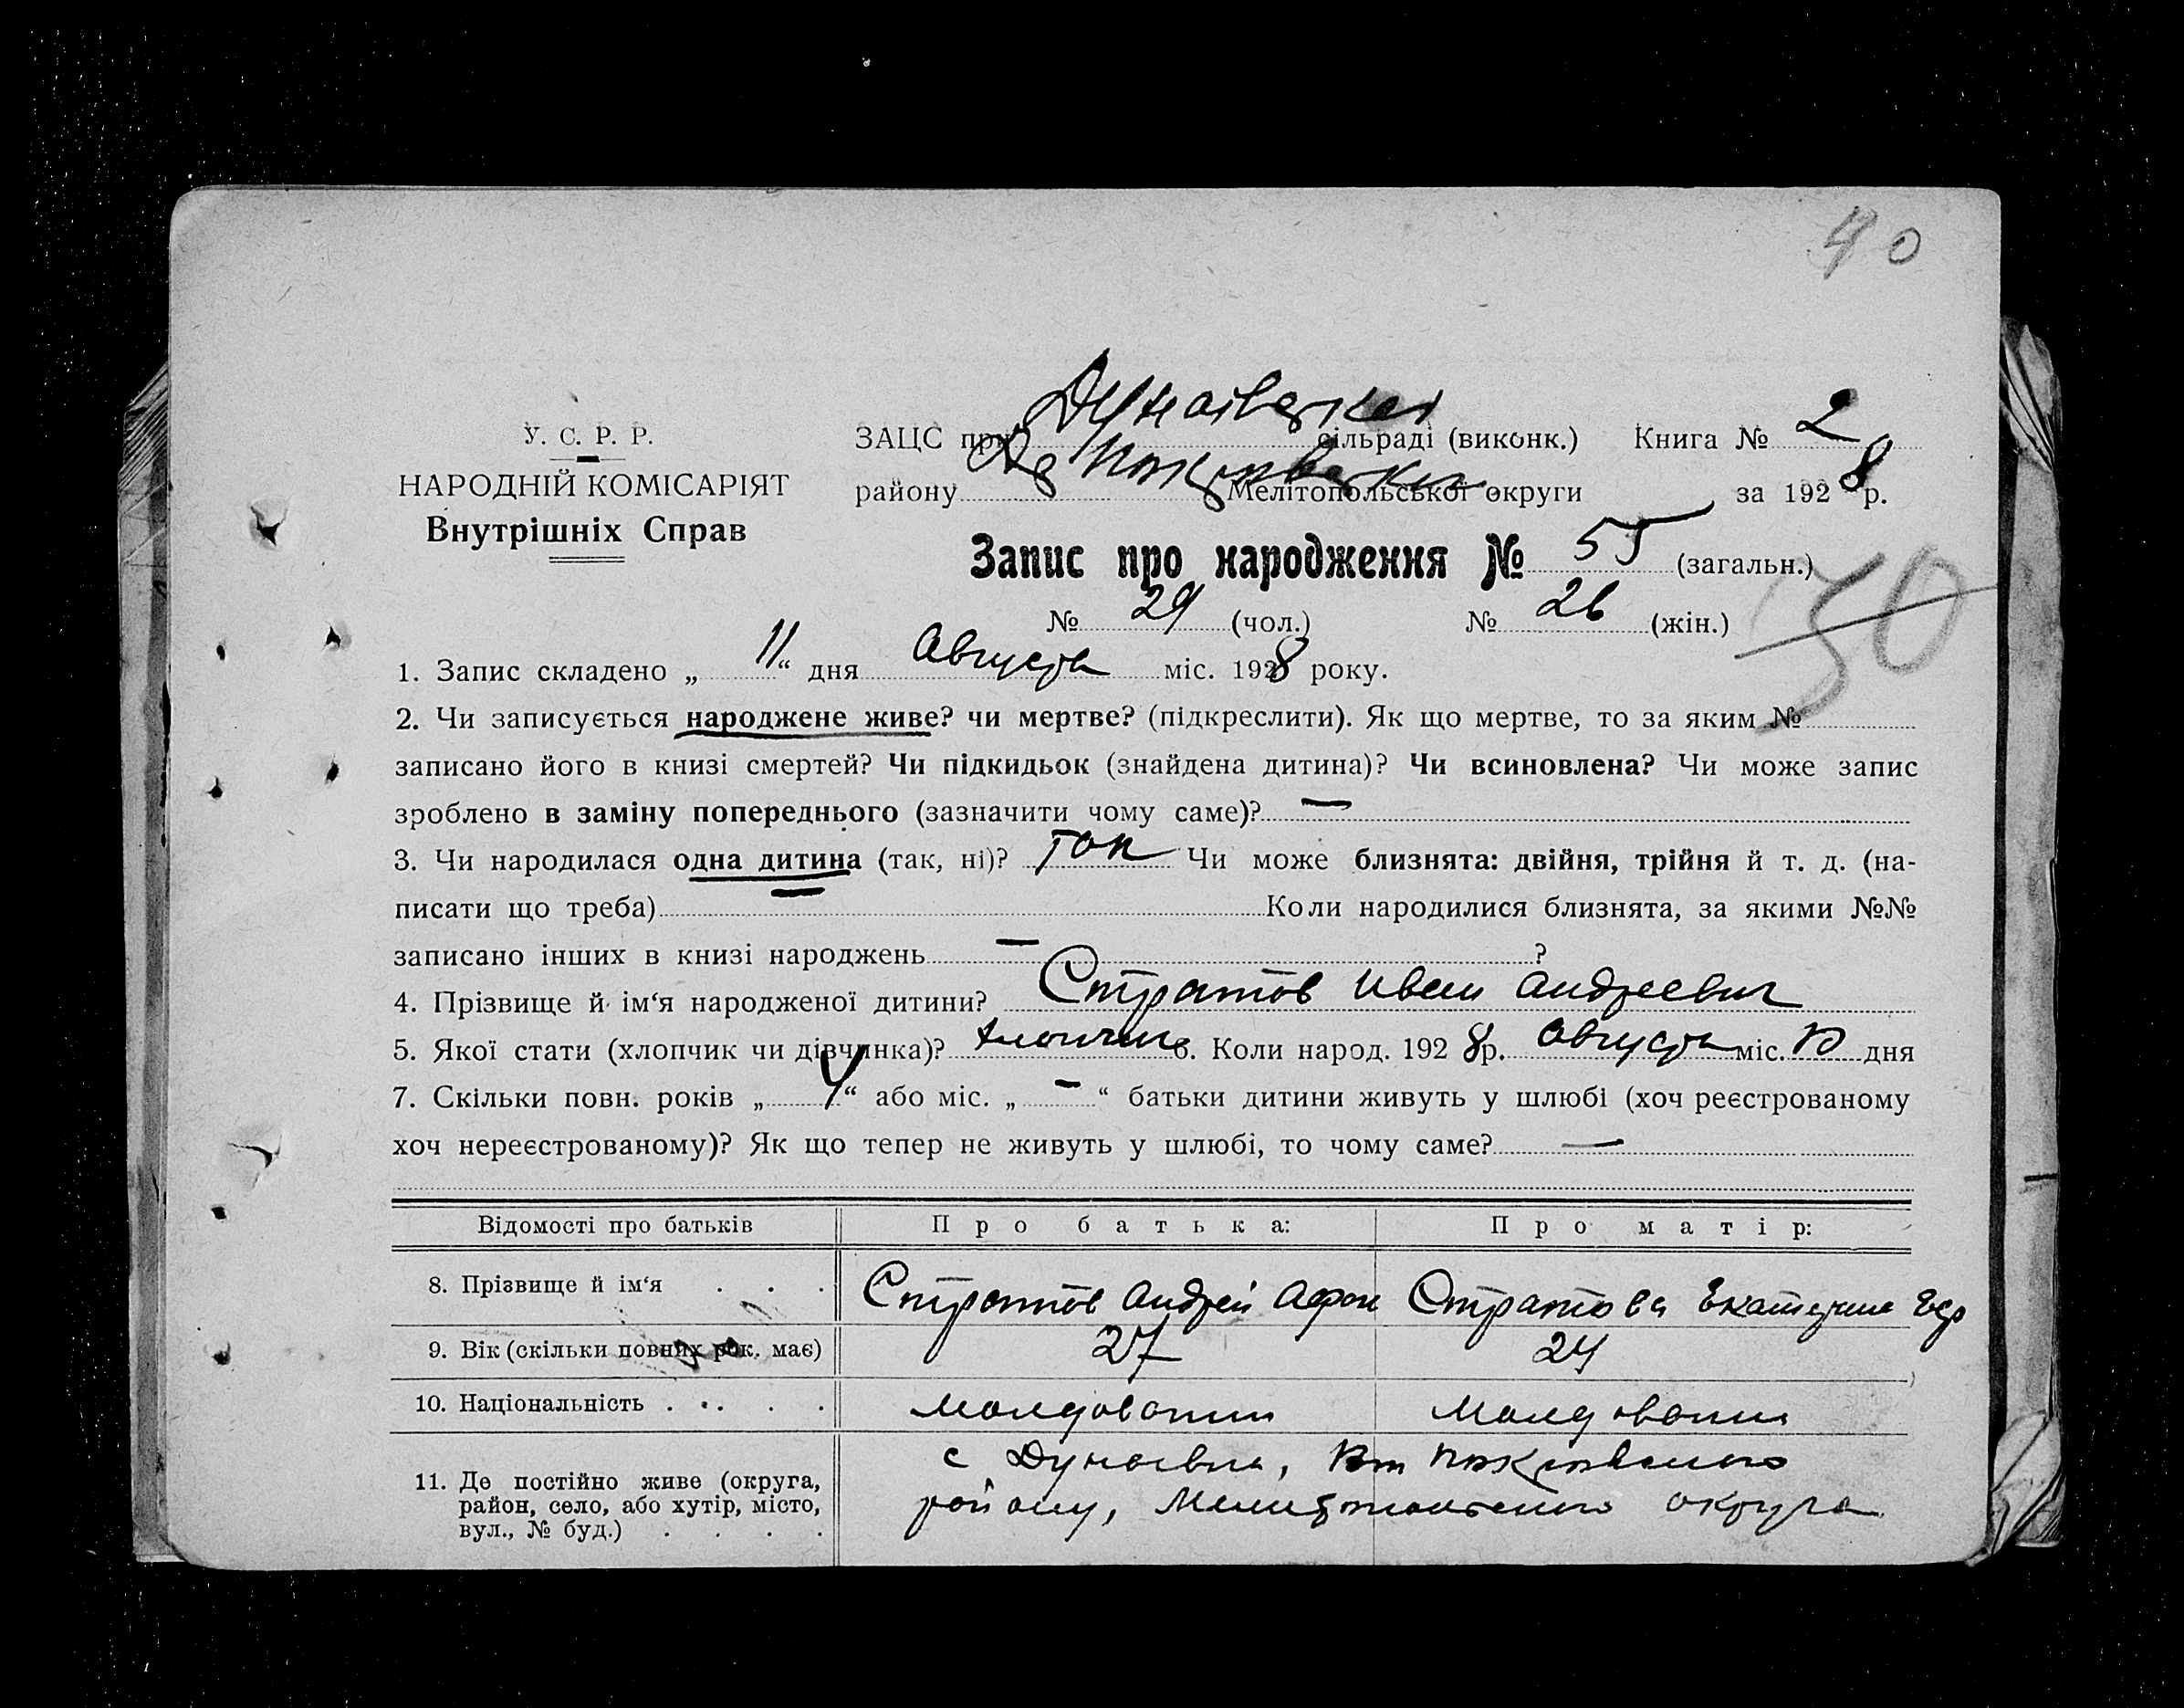 40
Дунаївскей
У. С. Р. Р.
ЗАЦС при сільраді (виконк.) Книга № 2
НАРОДНІЙ КОМІСАРІЯТ
району Мелітопольської округи за 1928 р.
Внутрішніх Справ
Запис про народження № 55 (загальн.)
№ 29 (чол.) № 26 (жін.)
50
1. Запис складено „ 11 “ дня Августа міс. 1928 року.
2. Чи записується народжене живе? чи мертве? (підкреслити). Як що мертве, то за яким №
записано його в книзі смертей? Чи підкидьок (знайдена дитина)? Чи всиновлена? Чи може запис
зроблено в заміну попереднього (зазначити чому саме)? —
3. Чи народилася одна дитина (так, ні)? так Чи може близнята: двійня, трійня й т. д. (на-
писати що треба) — Коли народилися близнята, за якими №№
записано інших в книзі народжень — ?
4. Прізвище й ім‘я народженої дитини? Стратов Иван Андреевич
5. Якої стати (хлопчик чи дівчинка)? хлопчик 6. Коли народ. 1928 р. Августа міс. 10 дня
7. Скільки повн. років „ 4 “ або міс. „ — “ батьки дитини живуть у шлюбі (хоч реєстрованому
хоч нереєстрованому)? Як що тепер не живуть у шлюбі, то чому саме? —
Відомості про батьків Про батька: Про матір:
8. Прізвище й ім‘я . . . Стратов Андрей Афон Стратова Екатерина Гер
9. Вік (скільки повних рок. має) 27 24
10. Національність . . . . . Молдованин Молдованка
11. Де постійно живе (округа, с Дунаевка,
район, село, або хутір, місто, району, Мелитопольского округа
вул., № буд.) . . . .